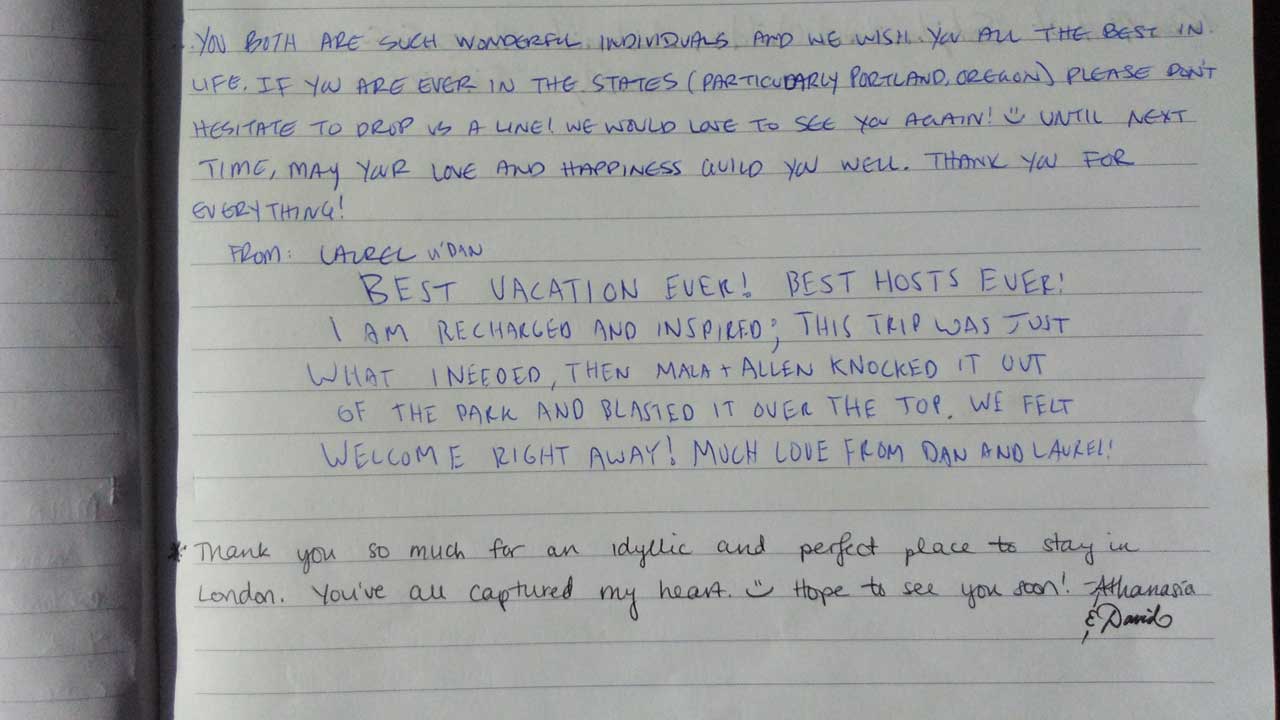 YOU BOTH ARE SUCH WONDERFUL INDIVIDUALS AND WE WISH YOU ALL THE BEST IN
LIFE. IF YOU ARE EVER IN THE STATES (PARTICULARLY PORTLAND, OREGON) PLEASE DON'T
HESITATE TO DROP US A LINE! WE WOULD LOVE TO SEE YOU AGAIN! UNTIL NEXT
TIME, MAY YOUR LOVE AND HAPPINESS GUILD YOU WELL. THANK YOU FOR
EVERYTHING!
FROM: LAUREL N' DAN
BEST VACATION EVER! BEST HOSTS EVER!
I AM RECHARGED AND INSPIRED; THIS TRIP WAS JUST
WHAT I NEEDED, THEN MALA + ALLEN KNOCKED IT OUT
OF THE PARK AND BLASTED IT OVER THE TOP. WE FELT
WELCOME RIGHT AWAY! MUCH LOVE FROM DAN AND LAUREL!
* Thank you so much for an idyllic and perfect place to stay in
London. You've all captured my heart. Hope to see you soon! -Athanasia
& David